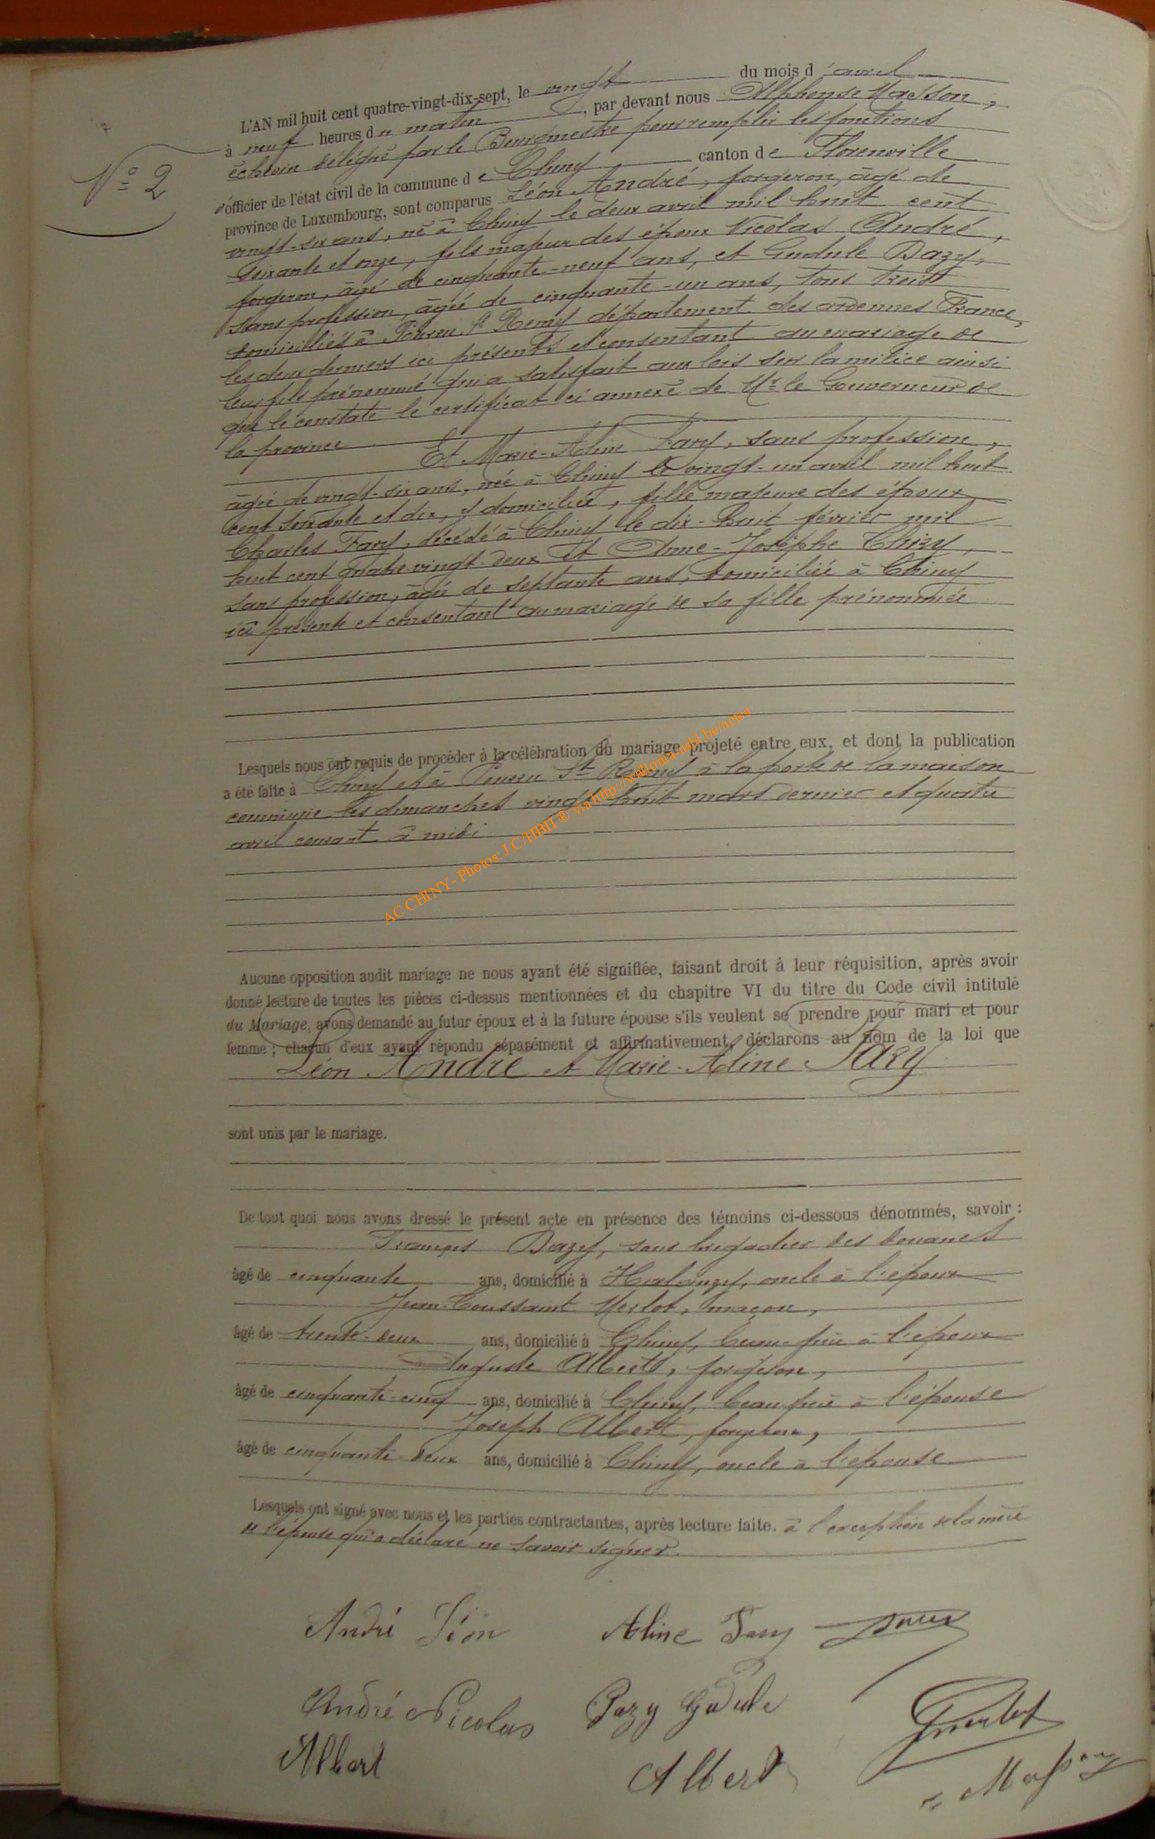 L'AN mil huit cent quatre-vingt-dix-sept, le vingt du mois d'avril
à neuf heures du matin, par devant nous Alphonse Masson,
échevin délégué par le Bourgmestre pour remplir les fonctions
d'officier de l'état civil de la commune de Chiny canton de Florenville
province de Luxembourg, sont comparus Léon André, forgeron, âgé de
N° 2
vingt-six ans, né à Chiny le deux avril mil huit cent
soixante et onze, fils majeur des époux Nicolas André,
forgeron, âgé de cinquante-neuf ans, et Gudule Dazy,
sans profession, âgée de cinquante-un ans, tous trois
domiciliés à Pourru St Remy département des ardennes France,
les deux derniers ici présents et consentant au mariage de
leur fils prénommé qui a satisfait aux lois sur la milice ainsi
que le constate le certificat ci annexé de Mr le Gouverneur de
la province
Et Marie-Aline Fary, sans profession,
âgée de vingt-six ans, née à Chiny le vingt-un avril mil huit
cent soixante et dix, y domiciliée, fille majeure des époux
Charles Fary, décédé à Chiny le dix-huit février mil
huit cent quatre-vingt-deux et Anne-Josèphe Thiry,
sans profession, âgée de septante ans, domiciliée à Chiny
ici présente et consentant au mariage de sa fille prénommée
Lesquels nous ont requis de procéder à la célébration du mariage projeté entre eux, et dont la publication
a été faite à Chiny et à Pourru St Remy à la porte de la maison
commune les dimanches vingt-huit mars dernier et quatre
avril courant à midi
ACCHINY - Photos J.C/HBIT® via http://
Aucune opposition audit mariage ne nous ayant été signifiée, faisant droit à leur réquisition, après avoir
donné lecture de toutes les pièces ci-dessus mentionnées et du chapitre VI du titre du Code civil intitulé
du Mariage, avons demandé au futur époux et à la future épouse s'ils veulent se prendre pour mari et pour
femme ; chacun d'eux ayant répondu séparément et affirmativement, déclarons au nom de la loi que
Léon André et Marie-Aline Fary
sont unis par le mariage.
De tout quoi nous avons dressé le présent acte en présence des témoins ci-dessous dénommés, savoir :
François Dazy, sous brigadier des douanes
âgé de cinquante ans, domicilié à Halanzy, oncle à l'époux
Jean-Toussaint Merlot, maçon,
âgé de trente-deux ans, domicilié à Chiny, beau-frère à l'époux
Auguste Albert, forgeron,
âgé de cinquante-cinq ans, domicilié à Chiny, beau frère à l'épouse
Joseph Albert, forgeron,
âgé de cinquante deux ans, domicilié à Chiny, oncle à l'épouse
Lesquels ont signé avec nous et les parties contractantes, après lecture faite. à l'exception de la mère
de l'épouse qui a déclaré ne savoir signer.
André Léon Aline Fary
André Nicolas Dazy Gudule
Albert Albert